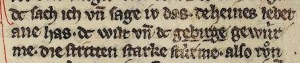 dc sach ich vn̄ sage iv das. deheines lebet
ane has. dc wilt vn̄ dc gebirge gewúr
me. die stritten starke stúrme. also tvͦn